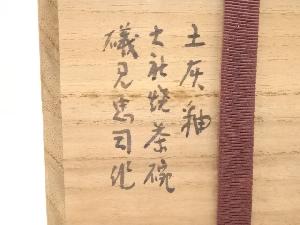 土灰釉
大社焼茶碗
礒見忠司作